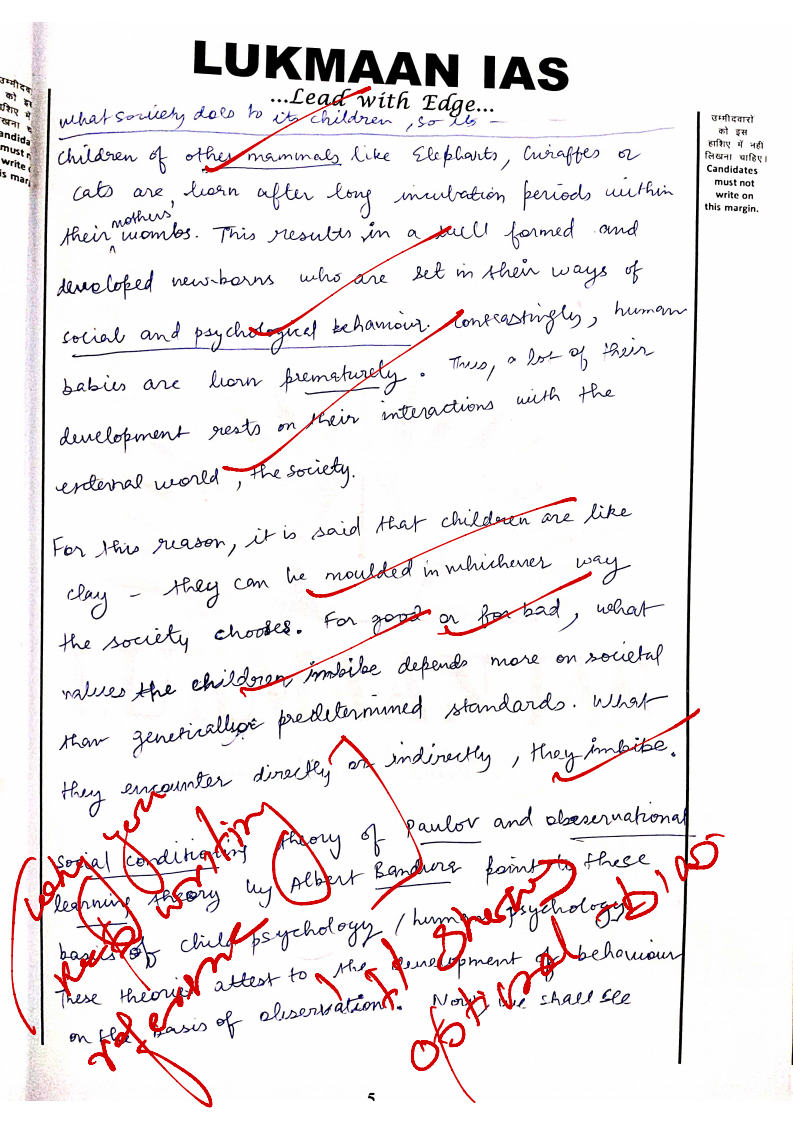 LUKMAAN IAS
...Lead with Edge...
उम्मीदवारों
को इस
हाशिए में नहीं
लिखना चाहिए।
Candidates
must not
write on
this margin.
what society does to its children, so its —
Children of other mammals like Elephants, Giraffes or
cats are, born after long incubation periods within
their mothers' wombs. This results in a well formed and
developed new-borns who are set in their ways of
social and psychological behaviour. Contrastingly, human
babies are born prematurely. Thus, a lot of their
development rests on their interactions with the
external world, the society.
For this reason, it is said that children are like
clay – they can be moulded in whichever way
the society chooses. For good or for bad, what
values the children imbibe depends more on societal
than genetically predetermined standards. What
they encounter directly or indirectly, they imbibe.
Social conditioning theory of Pavlov and observational
learning theory by Albert Bandura point to these
basis of child psychology / human psychology.
These theories attest to the development of behaviour
on the basis of observation. Now we shall see
why you
writing
reference
It shows
optional
5